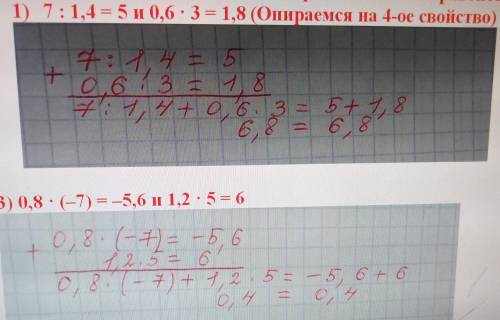 1) 7 : 1,4 = 5 и 0,6 · 3 = 1,8 (Опираемся на 4-ое свойство)
7 : 1,4 = 5
+
0,6 : 3 = 1,8
7 : 1,4 + 0,6 · 3 = 5 + 1,8
6,8 = 6,8
3) 0,8 · (–7) = –5,6 и 1,2 · 5 = 6
+ 0,8 · (-7) = -5,6
1,2 · 5 = 6
0,8 · (-7) + 1,2 · 5 = -5,6 + 6
0,4 = 0,4